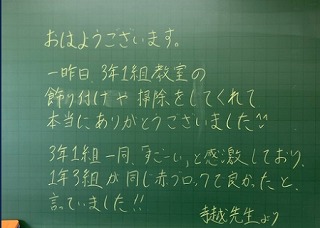 おはようございます。
一昨日、3年1組教室の
飾り付けや掃除をしてくれて
本当にありがとうございました^^
3年1組一同、「すご〜い」と感激しており、
1年3組が同じ赤ブロックで良かったと、
言っていました!!
寺越先生より